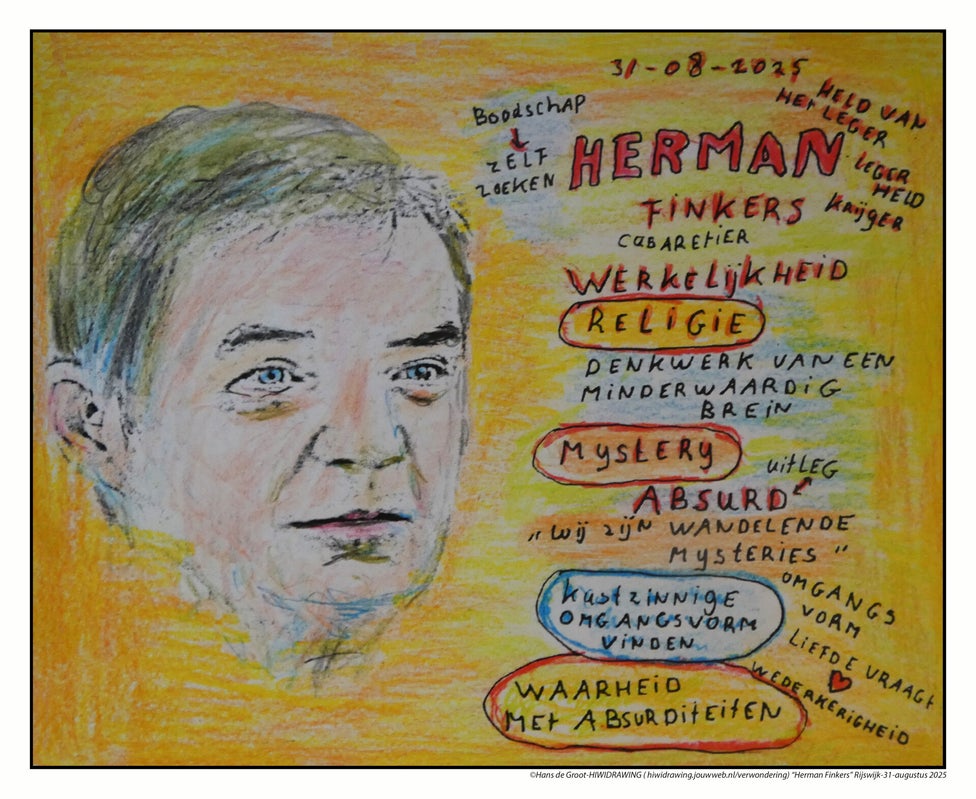 31-08-2025
BOODSCHAP
ZELF
ZOEKEN
HERMAN
HELD VAN
HET LEGER
LEGER
HELD
KRIJGER
FINKERS
CABARETIER
WERKELIJKHEID
RELIGIE
DENKWERK VAN EEN
MINDERWAARDIG
BREIN
MYSTERY
UITLEG
ABSURD
„WIJ ZIJN WANDELENDE
MYSTERIES"
KUSTZINNIGE
OMGANGSVORM
VINDEN
OMGANGS
VORM
LIEFDE VRAAGT
WEDERKERIGHEID
WAARHEID
MET ABSURDITEITEN
©Hans de Groot-HIWIDRAWING ( hiwidrawing.jouwweb.nl/verwondering) "Herman Finkers" Rijswijk-31-augustus 2025